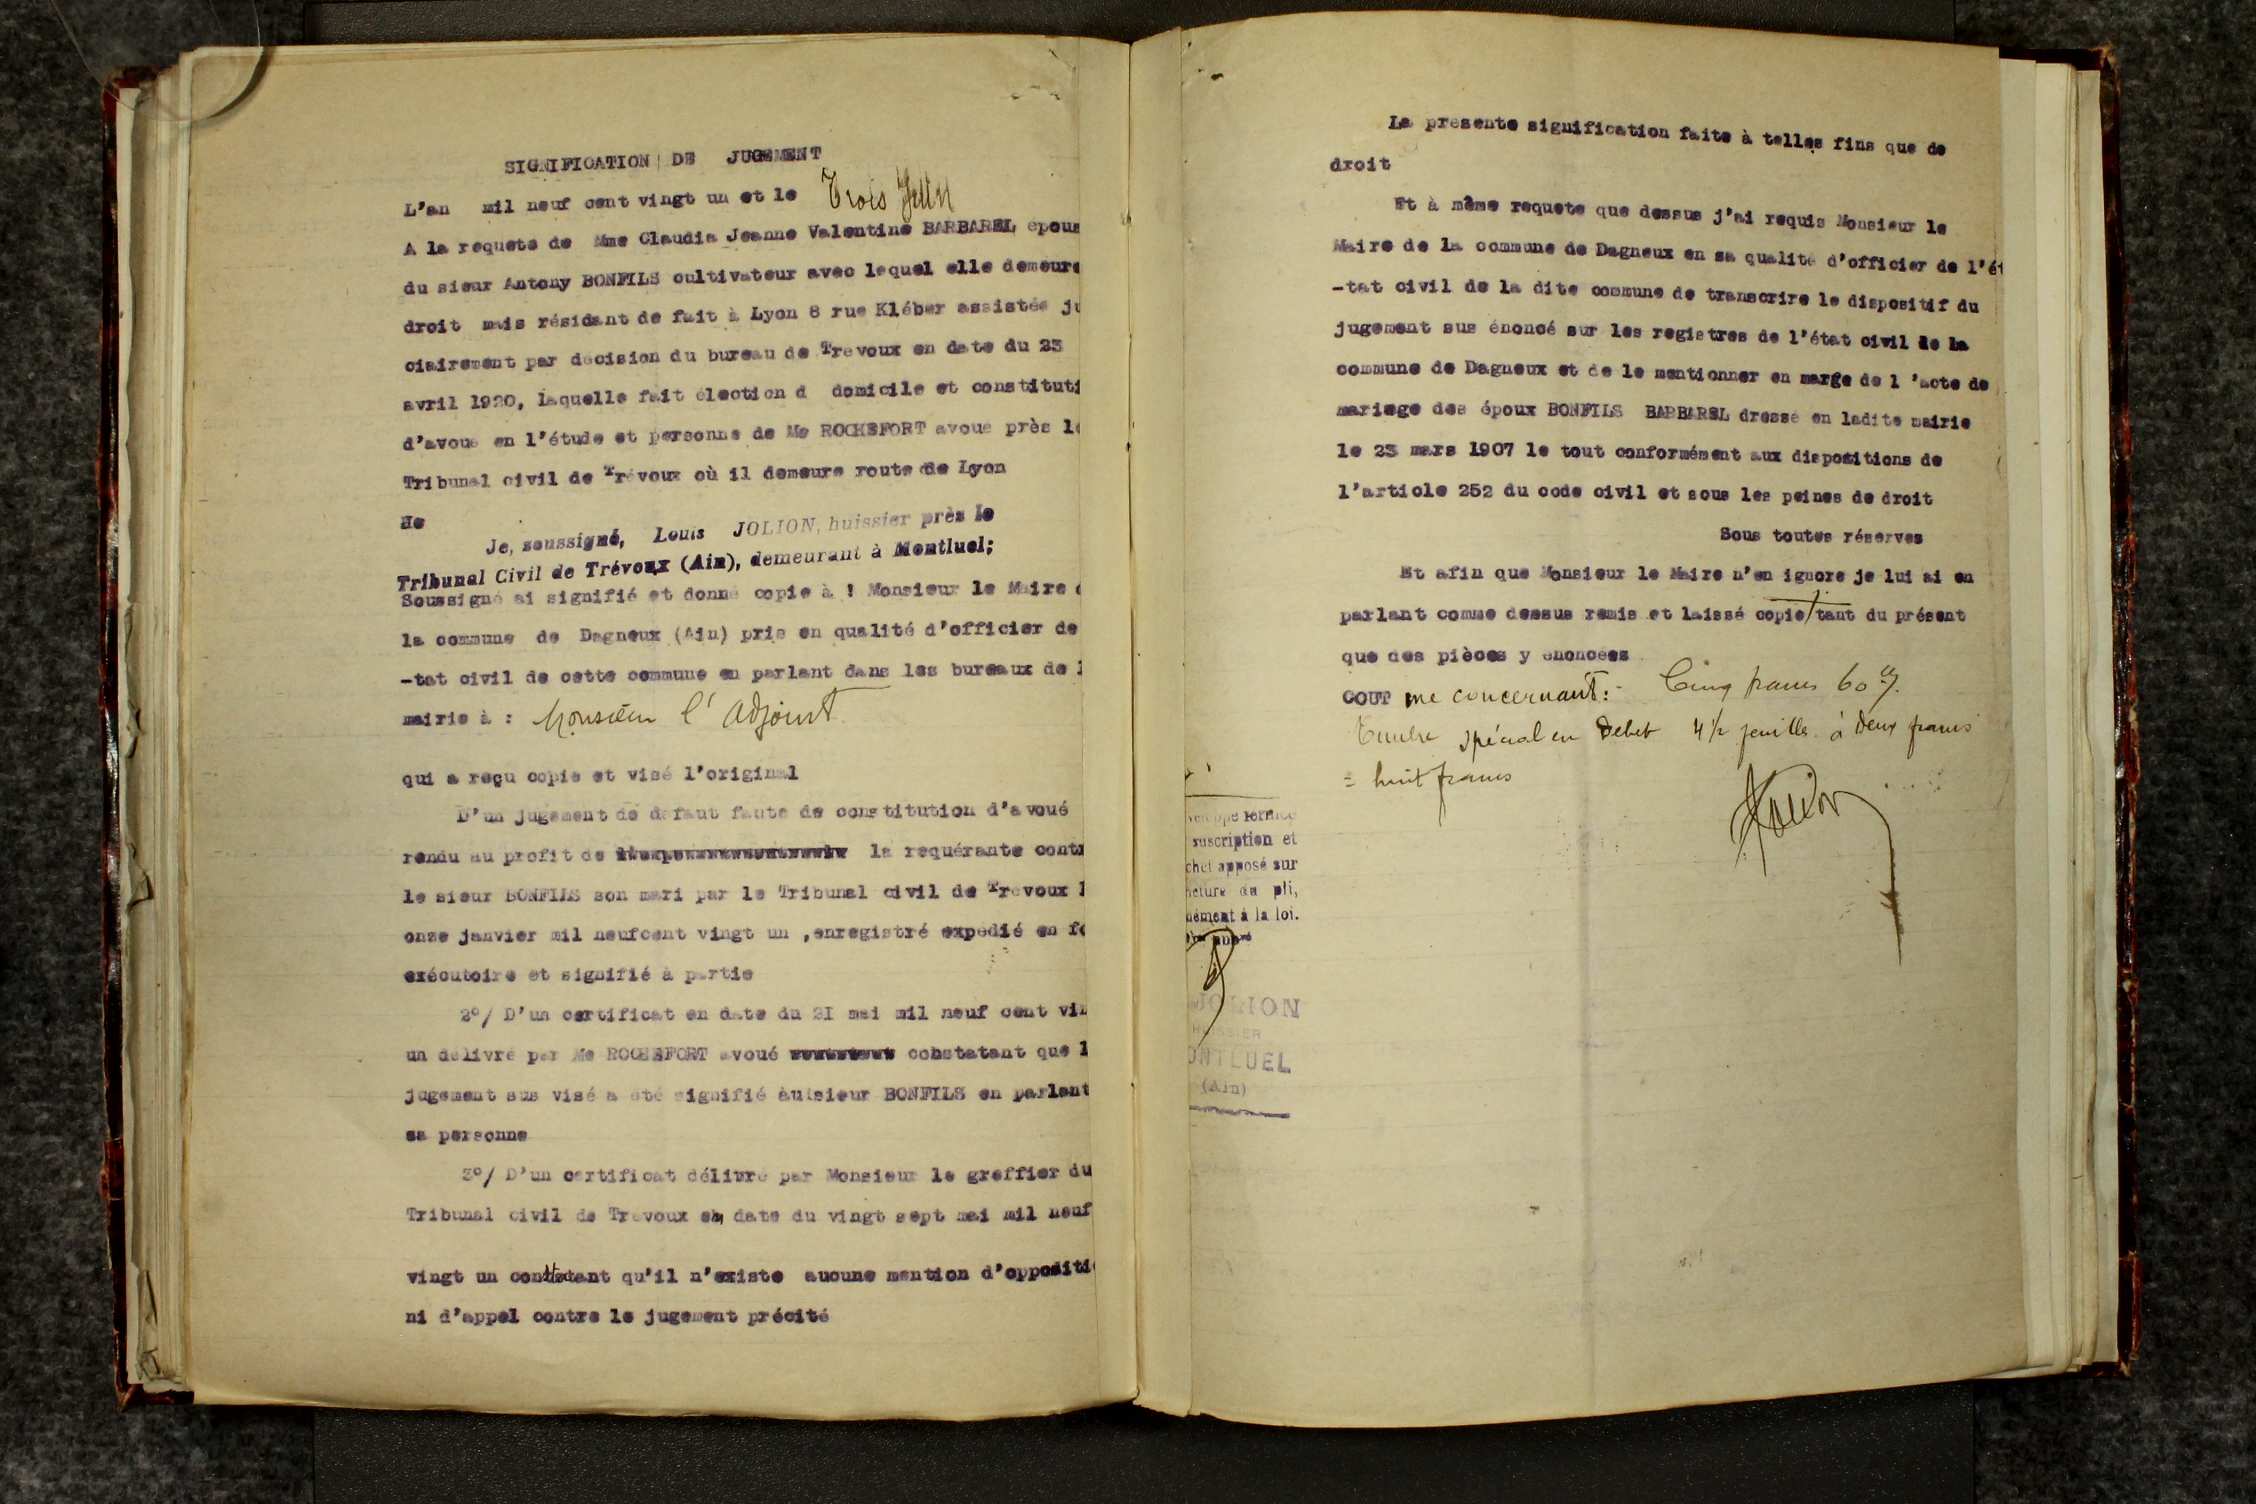 SIGNIFICATION DE JUGEMENT
L'an mil neuf cent vingt un et le Trois Juin
A la requete de Mme Claudia Jeanne Valentine BARBAREL epous
du sieur Antony BONFILS cultivateur avec lequel elle demeure
droit mais résidant de fait à Lyon 8 rue Kléber assistée ju
ciairement par decision du bureau de Trevoux en date du 23
avril 1920, laquelle fait élection d domicile et constituti
d'avoue en l'étude et personne de Me ROCHEFORT avoue près le
Tribunal civil de Trévoux où il demeure route de Lyon
Je, soussigné, Louis JOLION, huissier près le
Tribunal Civil de Trévoux (Ain), demeurant à Montluel;
Soussigné ai signifié et donné copie à ! Monsieur le Maire
la commune de Dagneux (Ain) pris en qualité d'officier de
-tat civil de cette commune en parlant dans les bureaux de
mairie à : Monsieur l'adjoint
qui a reçu copie et visé l'original
D'un jugement de defaut faute de constitution d'avoué
rendu au profit de la requérante contr
le sieur BONFILS son mari par le Tribunal civil de Trevoux l
onze janvier mil neufcent vingt un ,enregistré expedié en fo
exécutoire et signifié à partie
2º/ D'un certificat en date du 2I mai mil neuf cent vin
un delivré par Me ROCHEFORT avoué constatant que l
jugement sus visé a été signifié au sieur BONFILS en parlant
sa personne
3º/ D'un certificat délivré par Monsieur le greffier du
Tribunal civil de Trevoux en date du vingt sept mai mil neuf
vingt un constatant qu'il n'existe aucune mention d'oppositi
ni d'appel contre le jugement précité
La presente signification faite à telles fins que de
droit
Et à même requete que dessus j'ai requis Monsieur le
Maire de la commune de Dagneux en sa qualité d'officier de l'ét
-tat civil de la dite commune de transcrire le dispositif du
jugement sus énoncé sur les registres de l'état civil de la
commune de Dagneux et de le mentionner en marge de l 'acte de
mariage des époux BONFILS BARBAREL dressé en ladite mairie
le 23 mars 1907 le tout conformément aux dispositions de
l'article 252 du code civil et sous les peines de droit
Sous toutes réserves
Et afin que Monsieur le Maire n'en ignore je lui ai en
parlant comme dessus remis et laissé copie/tant du présent
que des pièces y enoncées
COUT me concernant: Cinq francs 60 c.
Timbre spécial en Debet 4 1/2 feuilles à deux francs
= huit francs
Jolion
suscription et
chet apposé sur
cture du pli,
mément à la loi.
JOLION
HUISSIER
ONTLUEL
(Ain)